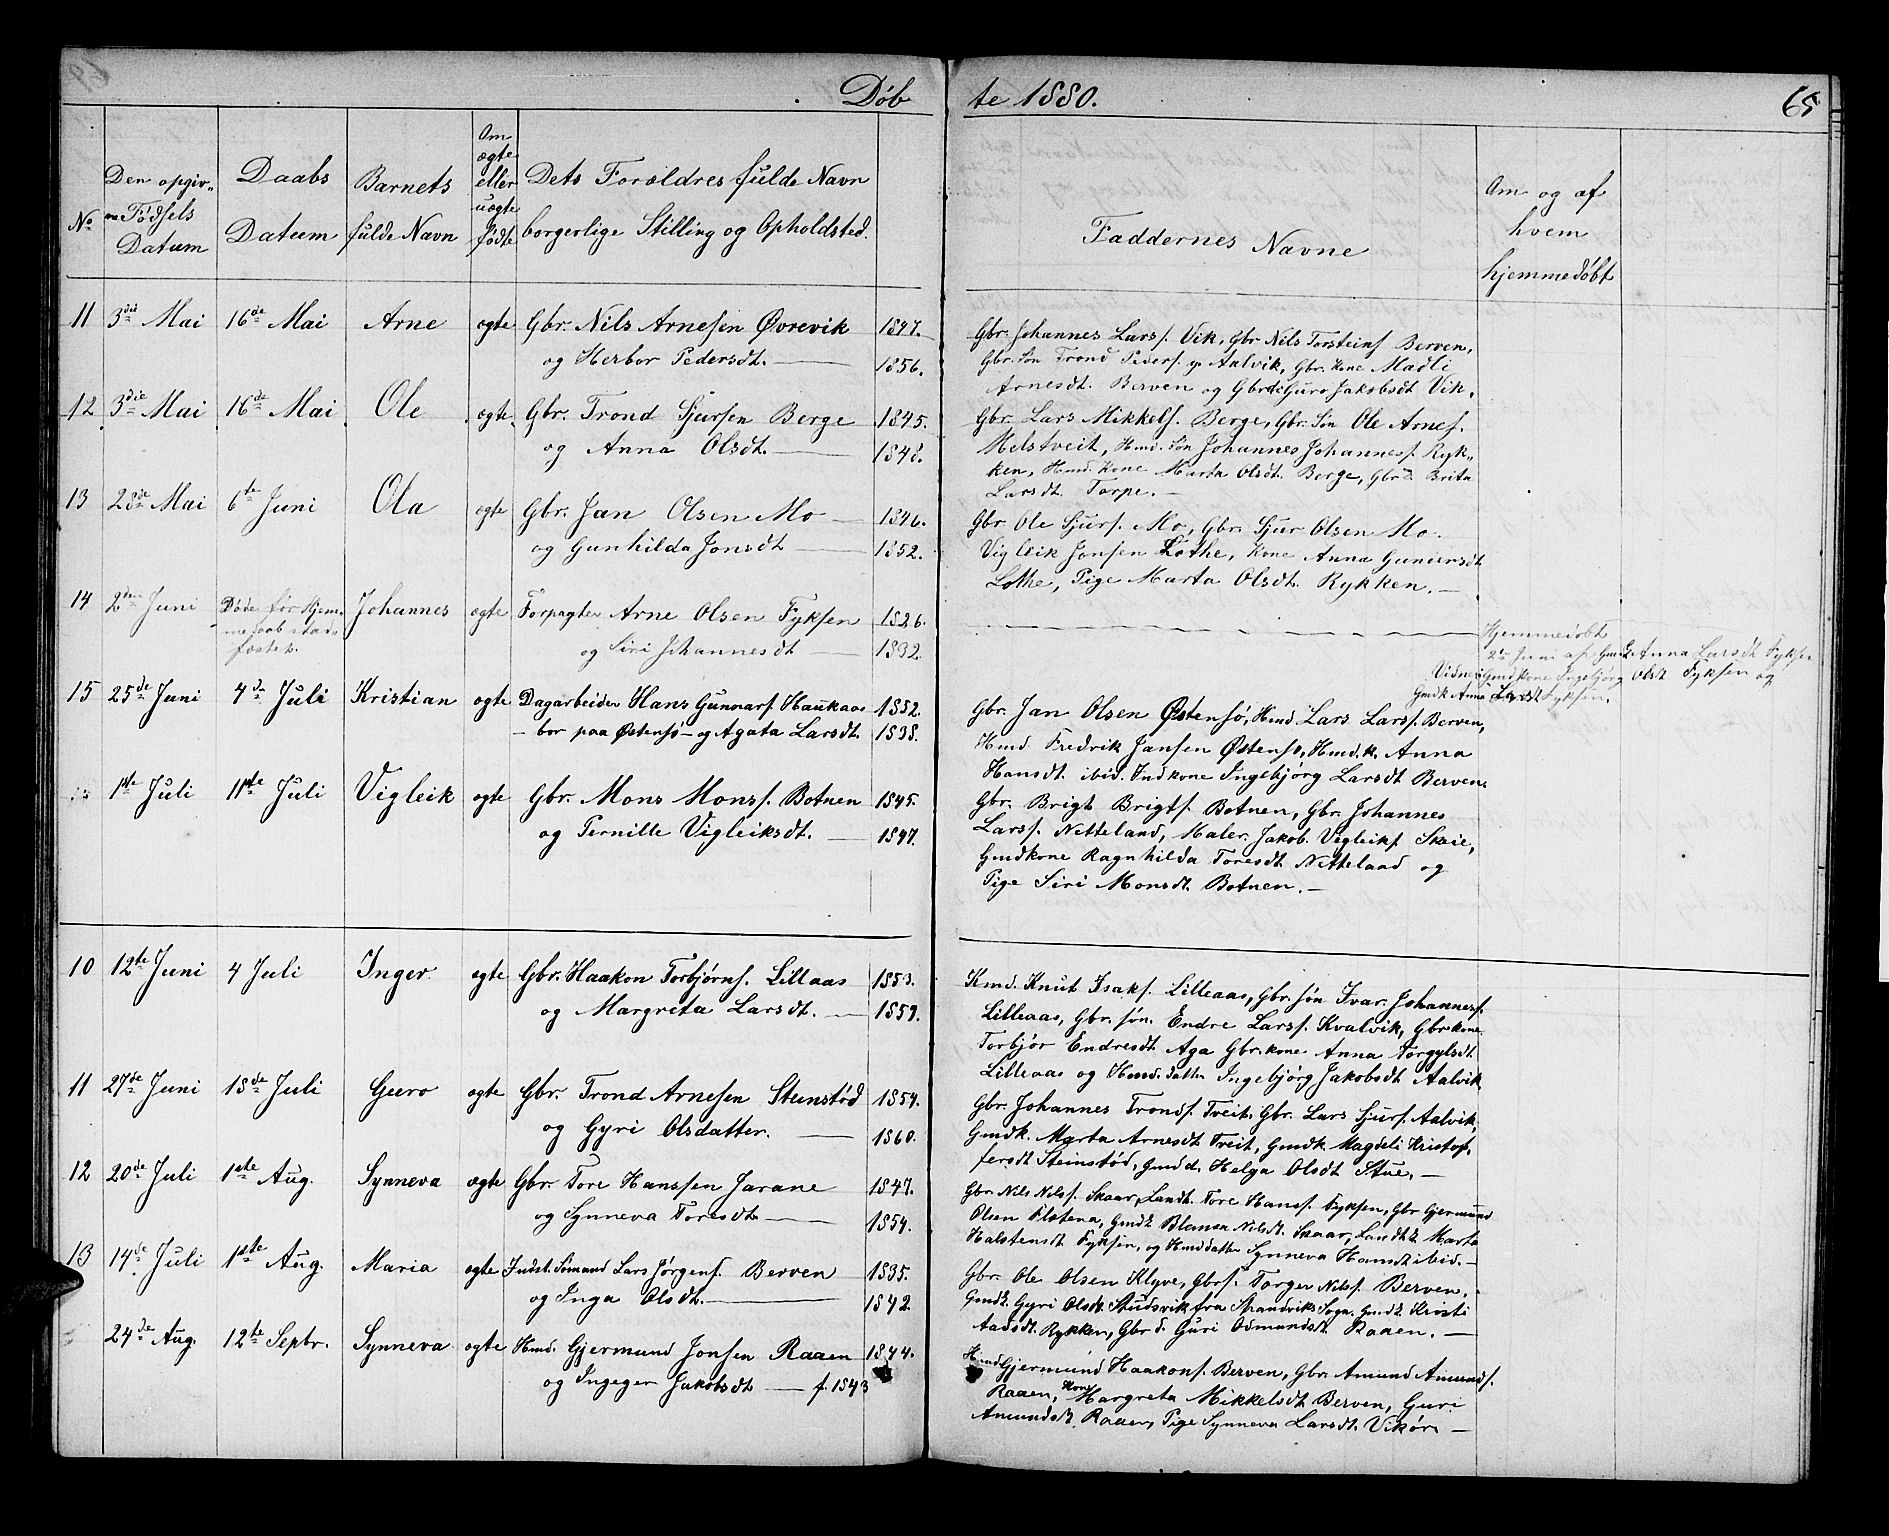 Döb
te 1880.
65
No
Den opgivne Födsels Datum
Daabs Datum
Barnets fulde Navn
Om ægte eller uægte födte
Dets Forældres fulde Navn borgerlige Stilling og Opholdsted.
Faddernes Navne
Om og af hvem hjemmedöbt
11 3die Mai 16de Mai Arne ægte Gbr. Nils Arnesen Øvrevik 1847.
og Herbor Pedersdt. 1856.
Gbr. Johannes Larss. Vik, Gbr. Nils Torsteins. Berven,
Gbr. Søn Trond Peders. Aalvik, Gbr. Kone Madli
Arnesdt. Berven og Gbrdt Guro Jakobsdt Vik.
12 3die Mai 16de Mai Ole ægte. Gbr. Trond Sjursen Berge 1845.
og Anna Olsdt. 1848.
Gbr. Lars Mikkels. Berge, Gbr. Søn Ole Arnes.
Melstveit, Hmd. Søn Johannes Johanness. Ryk-
ken, Hmd. Kone Marta Olsdt. Berge, Gbrd. Brita
Larsdt. Torpe. —
13 28de Mai 6te Juni Ola ægte Gbr. Jan Olsen Mo 1846.
og Gunhilda Jonsdt 1852.
Gbr. Ole Sjurs. Mo, Gbr. Sjur Olsen Mo.
Vigleik Jonsen Lothe, Kone Anna Gunnersdt
Lothe, Pige Marta Olsdt. Rykken. —
14 2den Juni Döde för Hjem- Johannes ægte Forpagter Arne Olsen Fyksen 1826.
medaab stad-
fæstet.
og Siri Johannesdt 1832
Hjemmedöbt
2de Juni af Gmdk Anna Larsdt Fyksen
Vidner Gmdkone Ingebjörg Olsdt Fyksen og
Gmdk Anna Larsdt Fyksen.
15 25de Juni 4de Juli Kristian ægte Dagarbeider Hans Gunnars. Haukaas 1852.
– bor paa Østensö – og Agata Larsdt. 1838.
Gbr. Jan Olsen Østensö, Hmd. Lars Larss. Berven,
Hmd Fredrik Jansen Østensö, Hmd.k. Anna
Hansdt. ibid. Indkone Ingebjörg Larsdt Berven.
1ste Juli 11te Juli Vigleik ægte Gbr. Mons Monss. Botnen 1845.
og Pernille Vigleiksdt. 1847.
Gbr. Brigt Brigts. Botnen, Gbr. Johannes
Larss. Netteland, Maler. Jakob. Vigleiks. Skeie,
Gmdkone Ragnhilda Toresdt. Netteland og
Pige Siri Monsdt. Botnen. —
10 12te Juni 4 Juli Inger ægte Gbr. Haakon Torbjörns. Lillaas 1853.
og Margreta Larsdt. 1859.
Kmd. Knut Isaks. Lilleaas, Gbr. søn Ivar Johanness.
Lilleaas, Gbr. søn. Endre Larss. Kvalvik, Gbr kone
Torbjör Endresdt. Aga Gbr. kone Anna Torgylsdt
Lilleaas og Hmd. datter Ingebjörg Jakobsdt Aalvik
11 27de Juni 18de Juli Guro ægte Gbr. Trond Arnesen Steinstød 1854.
og Gyri Olsdatter. 1860.
Gbr. Johannes Tronds. Tveit, Gbr. Lars Sjurs. Aalvik,
Gmdk. Marta Arnesdt Tveit, Gmdk. Magdeli Kristof-
fersdt Steinstød, Gmd d. Helga Olsdt Stue. —
12 20de Juli 1ste Aug. Synneva ægte Gbr. Tore Hanssen Jarane 1847.
og Synneva Toresdt 1854.
Gbr. Nils Nilss. Skaar, Landt. Tore Hanss. Fyksen, Gbr Gjermund
Olsen Flatena, Gmdk Blansa Nilsdt. Skaar, Landtk. Marta
Halstensdt Fyksen, og Hmddatter Synneva Hansdt ibid. —
13 14de Juli 1ste Aug. Maria ægte Indst. Sömand Lars Jörgens. Berven 1835.
og Inga Olsdt. 1842.
Gbr. Ole Olsen Klyve, Gbrs. Torger Nilss. Berven,
Gmdk. Gyri Olsdt. Studsvik fra Strandviks Sogn. Gmdk. Kristi
Aadsdt. Rykken, Gbr d. Guri Odmundsdt. Raaen. —
24de Aug. 12te Septbr. Synneva ægte Hmd. Gjermund Jonsen Raaen 1844.
og Ingeger Jakobsdt — f. 1843
Hmd Gjermund Haakons. Berven, Gbr. Amund Amunds.
Raaen, Kone Margreta Mikkelsdt Berven, Guri
Amundsdt. Raaen, Pige Synneva Larsdt. Vikör. —